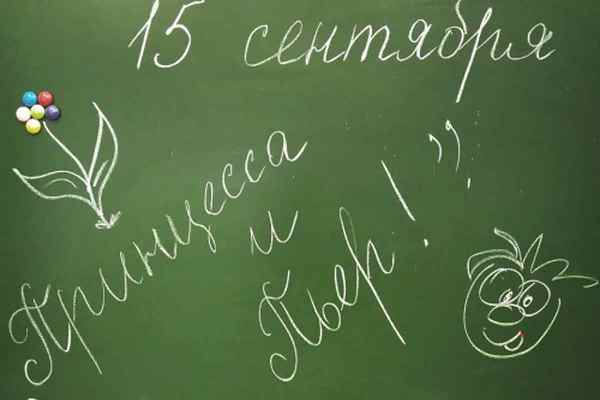 15 сентября
Принцесса
и
Пьер!”